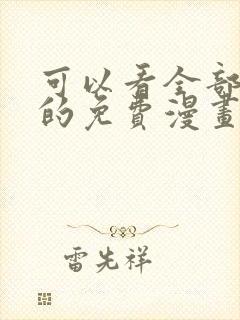 可以看全部
的免費漫畫
雷先祥